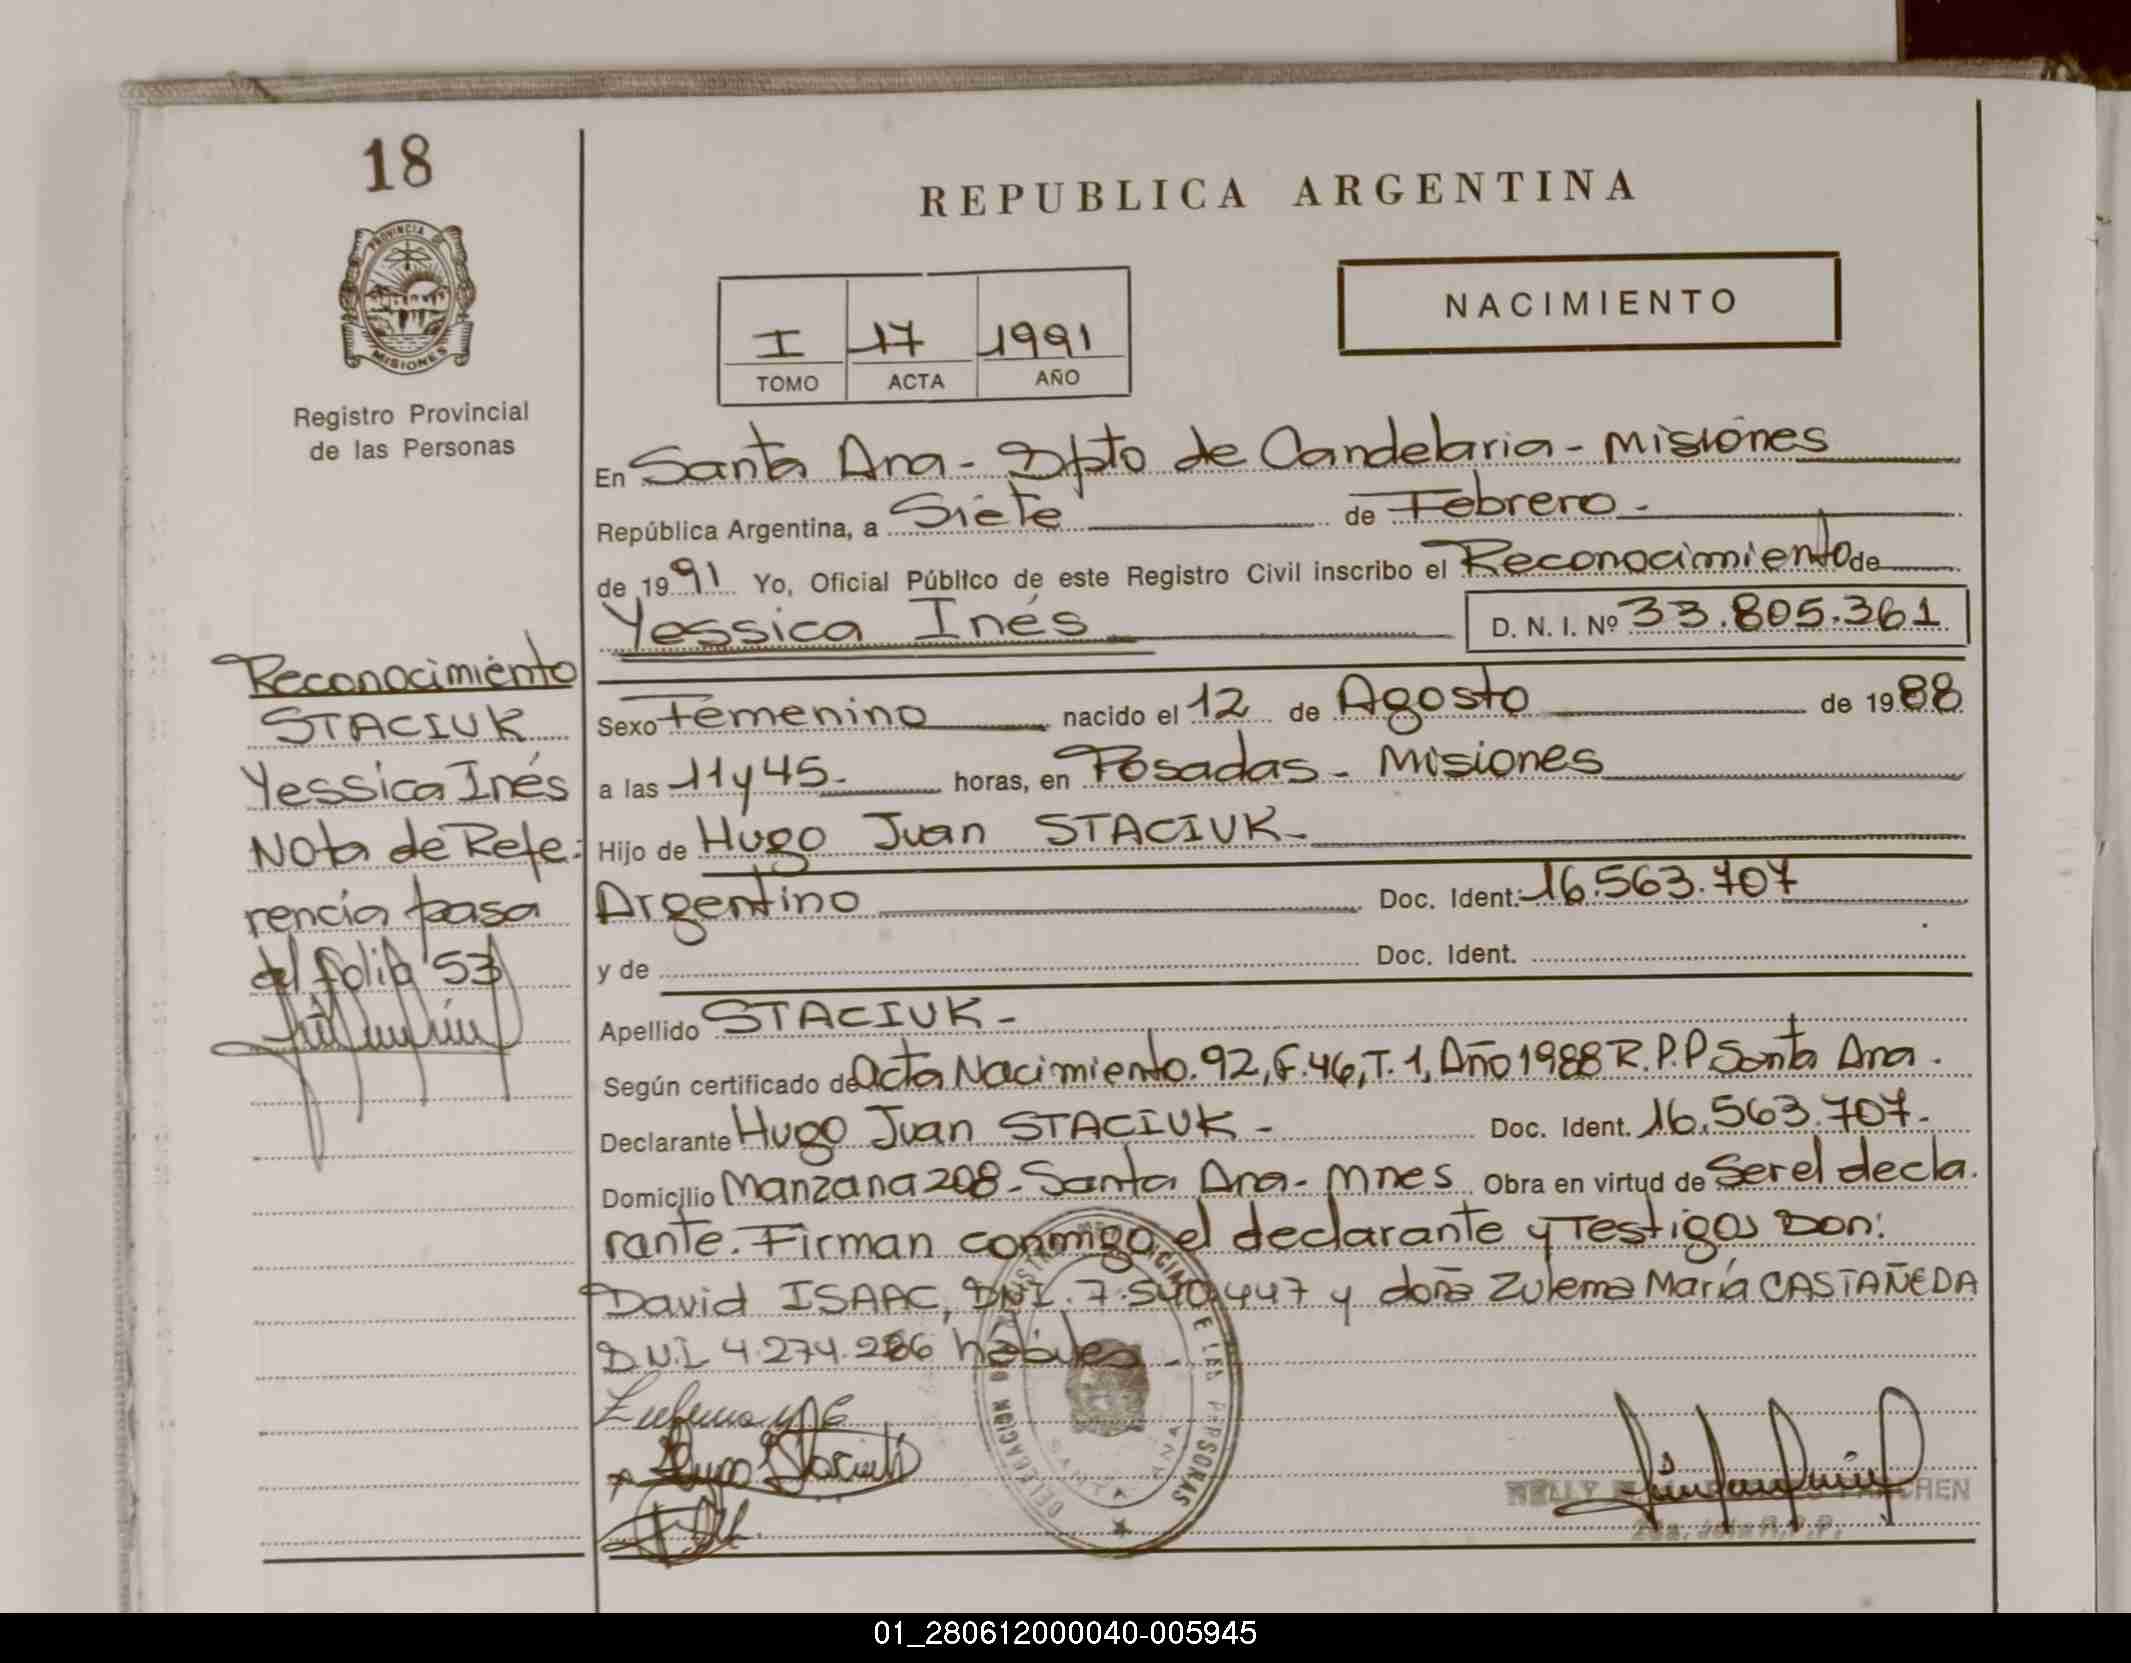 18
PROVINCIA DE
MISIONES
Registro Provincial
de las Personas
REPUBLICA ARGENTINA
NACIMIENTO
I 17 1991
TOMO ACTA AÑO
En Santa Ana - Dpto de Candelaria - Misiones
República Argentina, a Siete de Febrero.
de 1991 Yo, Oficial Público de este Registro Civil inscribo el Reconocimiento de
Yessica Inés D. N. I. Nº 33.805.361
Sexo Femenino nacido el 12 de Agosto de 1988
a las 11 y 45. horas, en Posadas - Misiones
Hijo de Hugo Juan STACIUK-
Argentino Doc. Ident: 16.563.707
y de Doc. Ident.
Apellido STACIUK -
Según certificado de Acta Nacimiento. 92, F.46, T. 1, Año 1988 R.P.P Santa Ana.
Declarante Hugo Juan STACIUK - Doc. Ident. 16.563.707.-
Domicilio Manzana 208 - Santa Ana - Mnes Obra en virtud de Ser el decla.
rante. Firman conmigo el declarante y Testigos Don:
David ISAAC, DNI. 7.540.447 y doña Zulema María CASTAÑEDA
D.N.I 4.274.286 hábiles.-
Reconocimiento
STACIUK
Yessica Inés
Nota de Refe-
rencia pasa
al folio 53
DELEGACION
DE LAS PERSONAS
SANTA ANA
NELLY
CHEN
01_280612000040-005945